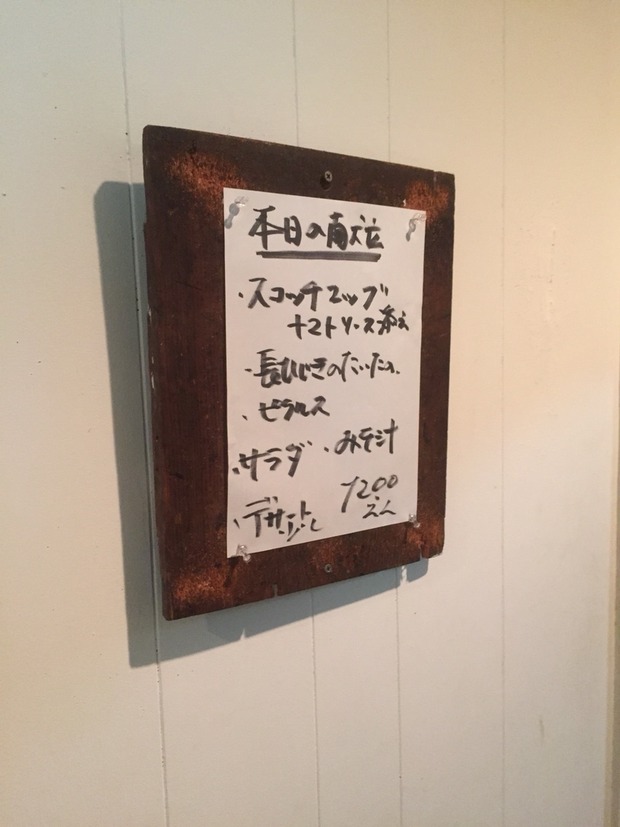 本日の
・スコッチエッグ
トマトソース添え
・長ひじきのたいたの
・ピクルス
・サラダ ・みそ汁
・デザート
1200
えん